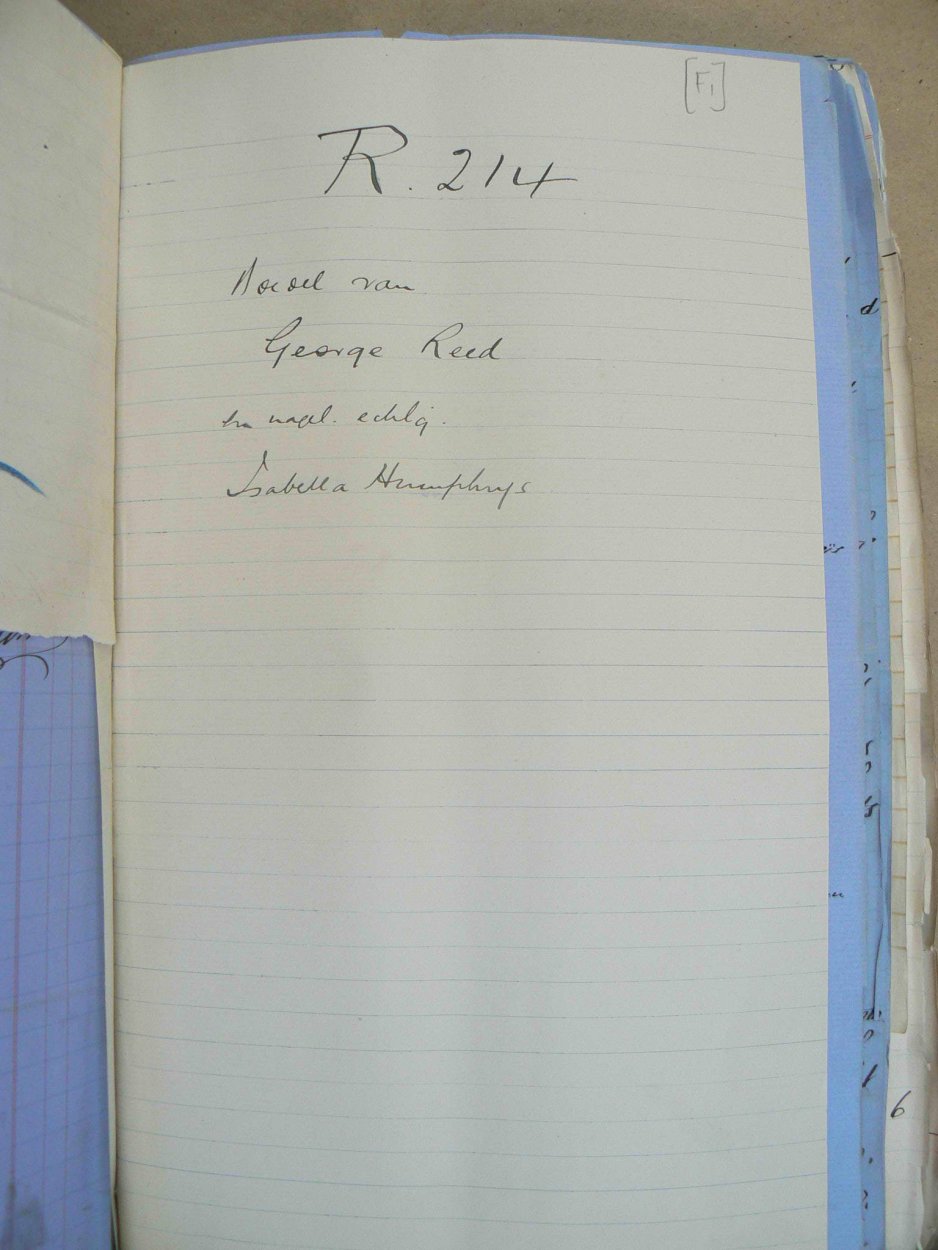 [F1]
R. 214
Boedel van
George Reed
en nagel. echtg.
Isabella Humphrys
6